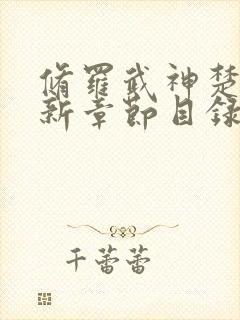 脩羅武神楚
新章節目錄
千蕾蕾